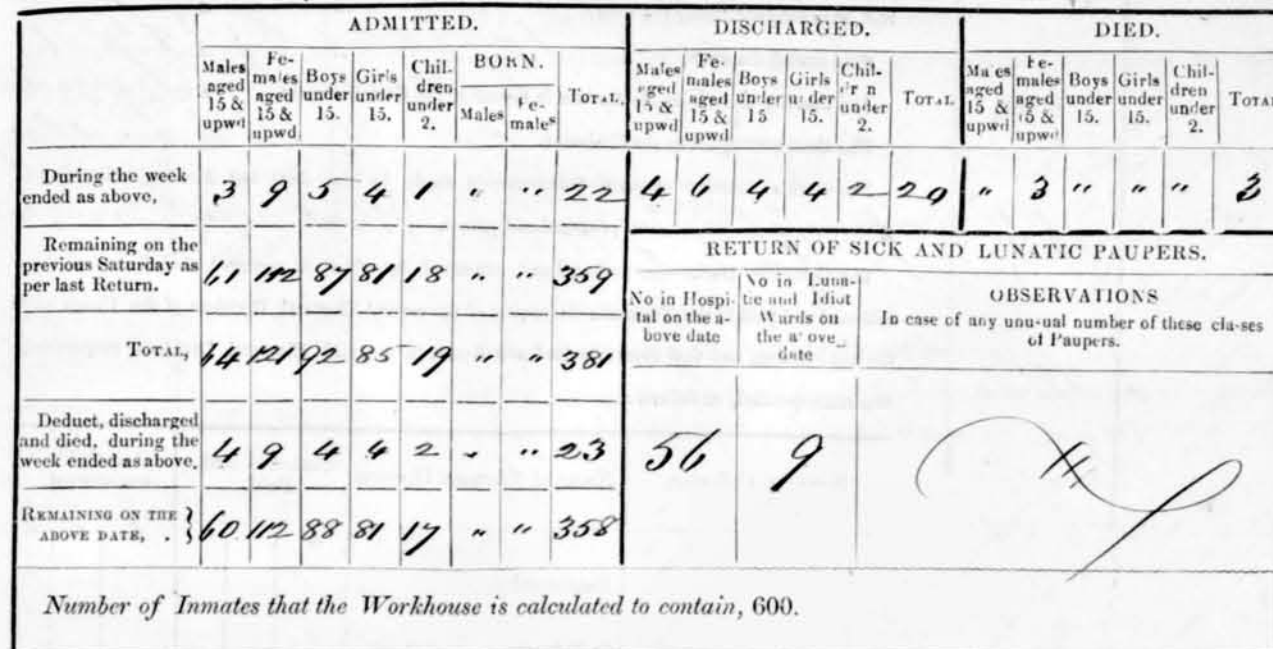 ADMITTED. DISCHARGED. DIED.
Males aged 15 & upwd Fe-males aged 15 & upwd Boys under 15. Girls under 15. Chil-dren under 2. BORN. Males Fe-males TOTAL. Males aged 15 & upwd Fe-males aged 15 & upwd Boys under 15 Girls under 15. Chil-dr n under 2. TOTAL Ma es aged 15 & upwd Fe-males aged 15 & upwd Boys under 15. Girls under 15. Chil-dren under 2. TOTAL
During the week
ended as above, 3 9 5 4 1 " " 22 4 6 4 4 2 20 " 3 " " " 3
Remaining on the
previous Saturday as
per last Return. 61 112 87 81 18 " " 359
TOTAL, 64 121 92 85 19 " " 381
Deduct, discharged
and died, during the
week ended as above. 4 9 4 4 2 " " 23
REMAINING ON THE
ABOVE DATE, . } 60 112 88 81 17 " " 358
RETURN OF SICK AND LUNATIC PAUPERS.
No in Hospi-
tal on the a-
bove date
No in Luna-
tic and Idiot
Wards on
the a ove
date
OBSERVATIONS
In case of any unu-ual number of these cla-ses
of Paupers.
56 9
Number of Inmates that the Workhouse is calculated to contain, 600.